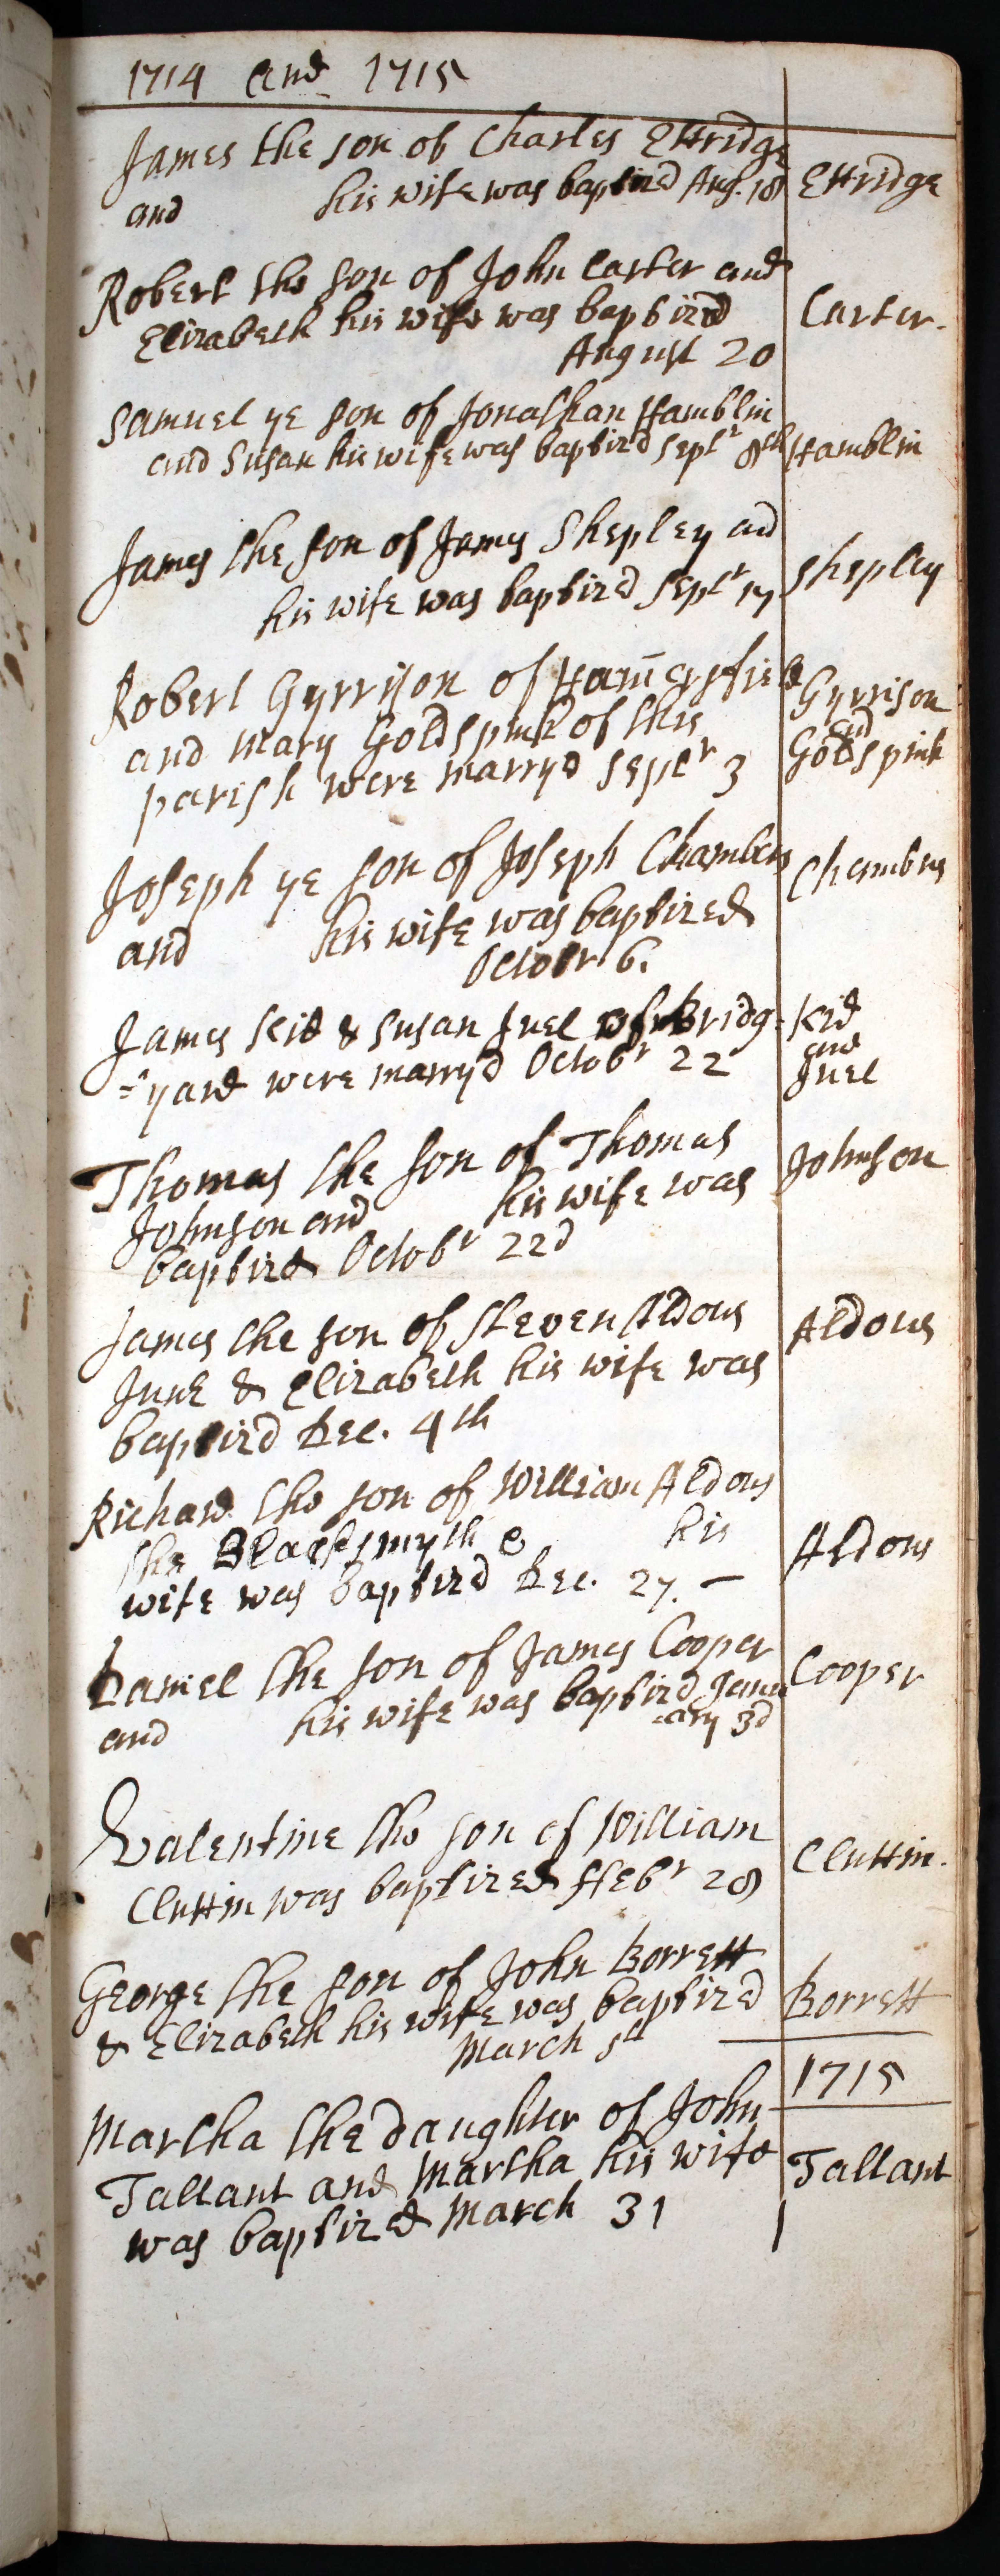 1714 and 1715
James the son of Charles Ettridge
and his wife was baptized Aug. 18
Ettridge
Robert the son of John Carter and
Elizabeth his wife was baptized
August 20
Carter.
Samuel ye son of Jonathan Hamblin
and Susan his wife was baptizd Septr 8th
Hamblin
James the son of James Shepley and
his wife was baptizd Septr 17
Shepley
Robert Gyrrison of
and Mary Goldspink of this
parish were marryd Septr 3
Gyrrison
and
Goldspink
Joseph ye son of Joseph Chambers
and his wife was baptized
Octobr 6.
Chambers
James Kid & Susan Juel of Bridg=
=yard were marryd Octobr 22
Kid
and
Juel
Thomas the son of Thomas
Johnson and his wife was
baptizd Octobr 22d
Johnson
James the son of Steven Aldous
June & Elizabeth his wife was
baptizd Dec. 4th
Aldous
Richard the son of William Aldous
the Blacksmyth & his
wife was baptizd Dec. 27. —
Aldous
Daniel the son of James Cooper
and his wife was baptizd Janu
=ary 3d
Cooper
Valentine the son of William
Cluttin was baptized ffebr 28
Cluttin.
George the son of John Borrett
& Elizabeth his wife was baptized
March 5th
Borrett
1715
Martha the daughter of John
Tallant and Martha his wife
was baptized March 31
Tallant